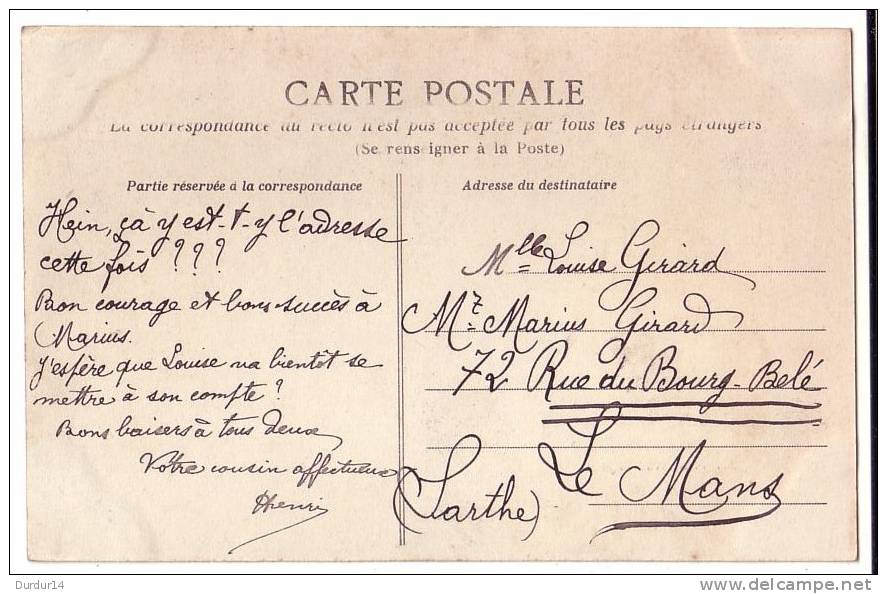 CARTE POSTALE
La correspondance au recto n'est pas acceptée par tous les pays étrangers
(Se renseigner à la Poste)
Partie réservée à la correspondance
Hein, çà y est-t-y l'adresse
cette fois ???
Bon courage et bons succès à
Marius.
J'espère que Louise va bientôt se
mettre à son compte ?
Bons baisers à tous deux
Votre cousin affectueux
Henri
Adresse du destinataire
Mlle Louise Girard
Mr Marius Girard
72 Rue du Bourg-Belé
Le Mans
(Sarthe)
Durdur14
delcampe.net